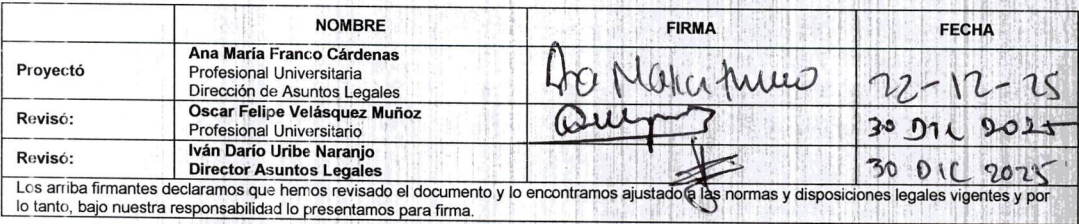 NOMBRE FIRMA FECHA
Proyectó Ana María Franco Cárdenas
Profesional Universitaria
Dirección de Asuntos Legales
Ana María Franco 22-12-25
Revisó: Oscar Felipe Velásquez Muñoz
Profesional Universitario
30 DIC 2025
Revisó: Iván Darío Uribe Naranjo
Director Asuntos Legales
30 DIC 2025
Los arriba firmantes declaramos que hemos revisado el documento y lo encontramos ajustado a las normas y disposiciones legales vigentes y por
lo tanto, bajo nuestra responsabilidad lo presentamos para firma.